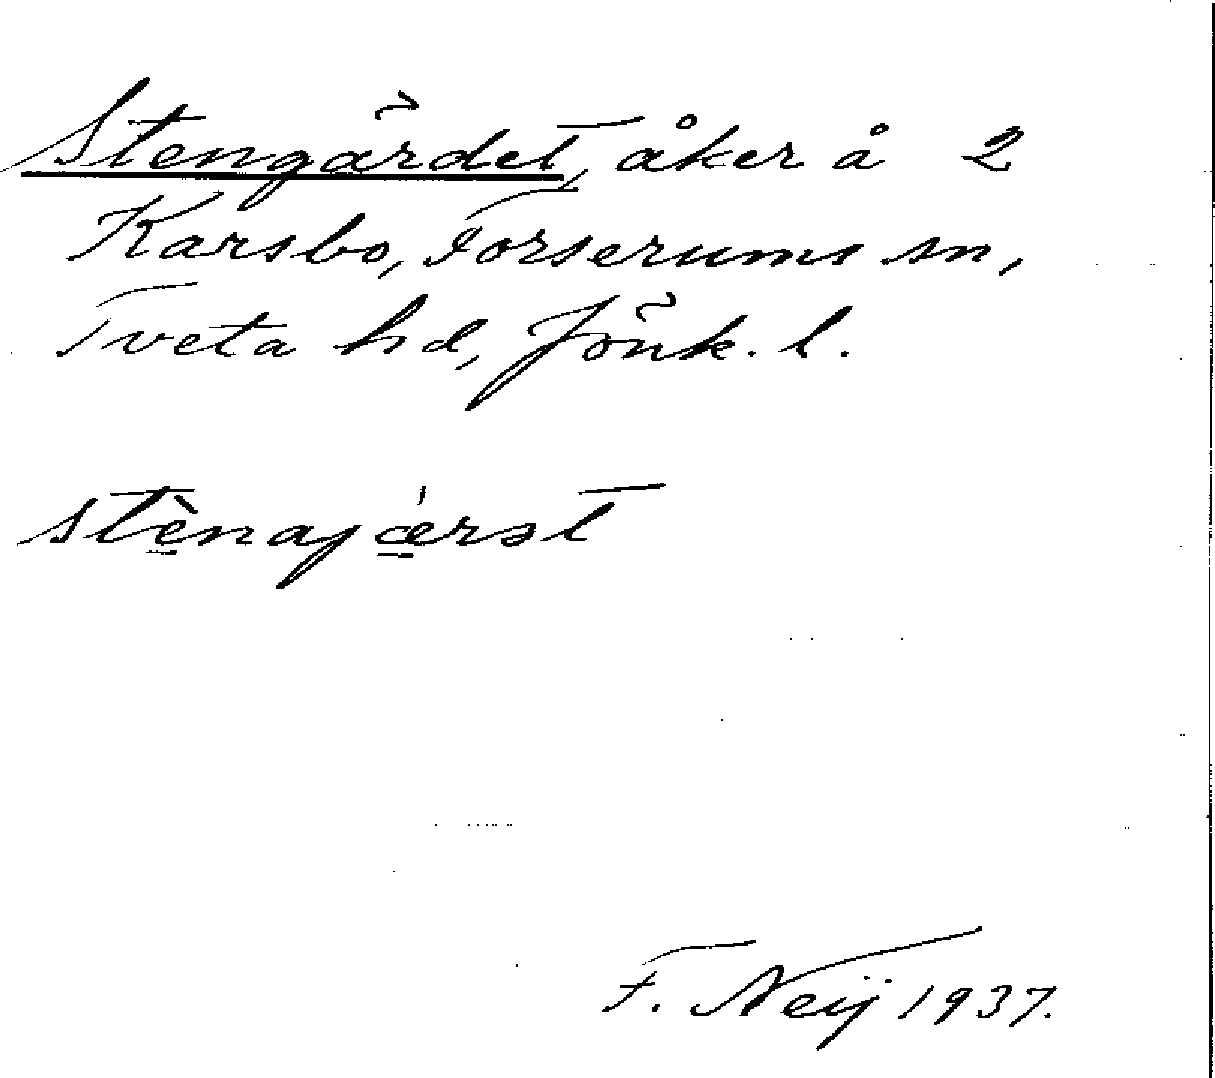 Stengärdet, åker å 2
Karsbo, Forserums sn,
Tveta hd, Jönk. l.
stènajæ̍rət
F. Neij 1937.